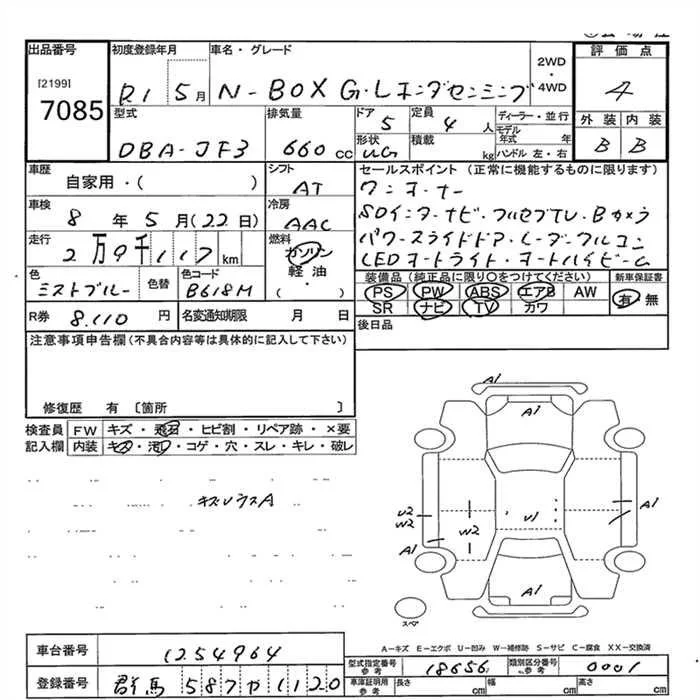 出品番号 初度登録年月 車名・グレード 評価点
[2199]
7085
R1 5月 N-BOX G・Lホンダセンシング 2WD・4WD 4
型式 排気量 ドア 5 定員 4人 ディーラー・並行 外装 内装
DBA-JF3 660cc 形状 UG 積載 kg モデル年式 年 ハンドル 左・右 B B
車歴 シフト セールスポイント (正常に機能するものに限ります)
自家用・( ) AT ワンオーナー
車検 8年5月(22日) 冷房 AAC SDインターナビ・フルセグTV・Bカメラ
走行 2万9千117km 燃料 ガソリン・軽油・( ) パワースライドドア・レーダークルコン
LEDオートライト・オートハイビーム
色 ミストブルー 色替 色コード B618M 装備品 (純正品に限り○をつけてください) 新車保証書
PS PW ABS エアB AW 有 無
SR ナビ TV カワ
R券 8,110円 名変通知期限 月 日 後日品
注意事項申告欄 (不具合内容等は具体的に記入して下さい)
修復歴 有 〔箇所 〕
検査員 FW キズ・飛石・ヒビ割・リペア跡・×要
記入欄 内装 キズ・汚レ・コゲ・穴・スレ・キレ・破レ
A1
A1
A1
U2
W2 W2 U1
A1
A1
スペア
A-キズ E-エクボ U-凹み W-補修跡 S-サビ C-腐食 XX-交換済
車台番号 1254964 型式指定番号 参考 18656 類別区分番号 参考 0001
登録番号 群馬 587や1120 車庫証明用 参考 長さ cm 幅 cm 高さ cm